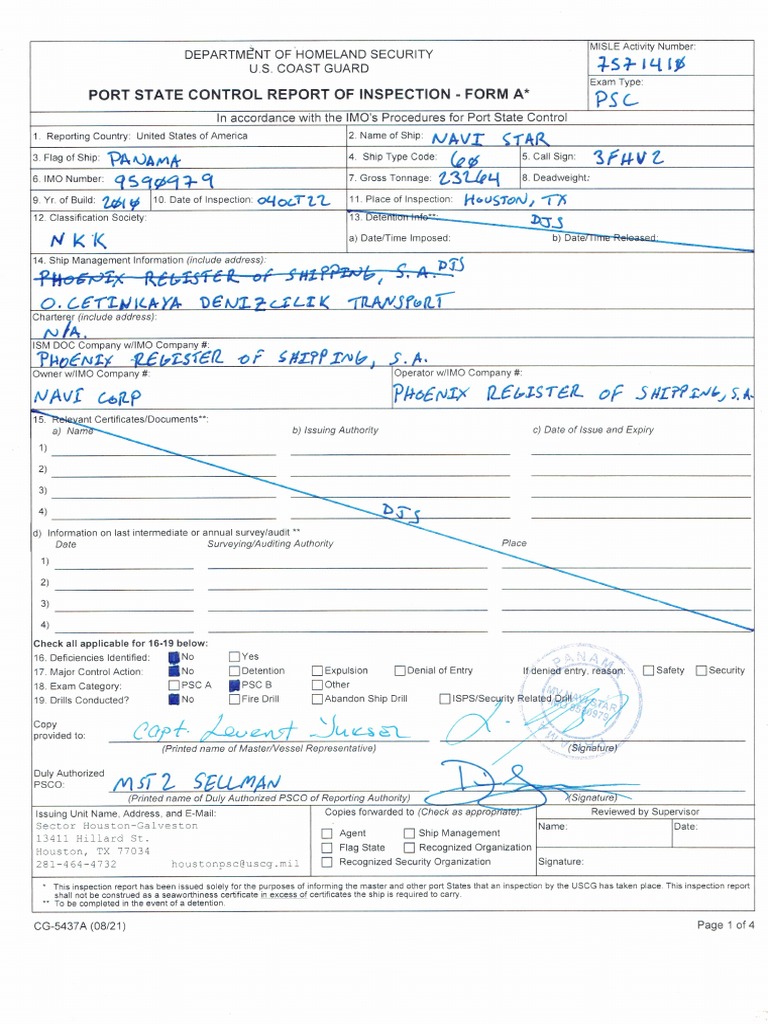 DEPARTMENT OF HOMELAND SECURITY
U.S. COAST GUARD
PORT STATE CONTROL REPORT OF INSPECTION - FORM A*
MISLE Activity Number:
7571410
Exam Type:
PSC
In accordance with the IMO's Procedures for Port State Control
1. Reporting Country: United States of America
2. Name of Ship: NAVI STAR
3. Flag of Ship: PANAMA
4. Ship Type Code: 60
5. Call Sign: 3FHV2
6. IMO Number: 9590979
7. Gross Tonnage: 23264
8. Deadweight:
9. Yr. of Build: 2010
10. Date of Inspection: 04OCT22
11. Place of Inspection: HOUSTON, TX
12. Classification Society:
NKK
13. Detention Info**: DJS
a) Date/Time Imposed: b) Date/Time Released:
14. Ship Management Information (include address):
PHOENIX REGISTER OF SHIPPING, S.A. DJS
O. CETINKAYA DENIZCILIK TRANSPORT
Charterer (include address):
N/A.
ISM DOC Company w/IMO Company #:
PHOENIX REGISTER OF SHIPPING, S.A.
Owner w/IMO Company #:
NAVI CORP
Operator w/IMO Company #:
PHOENIX REGISTER OF SHIPPING, S.A.
15. Relevant Certificates/Documents**:
a) Name b) Issuing Authority c) Date of Issue and Expiry
1)
2)
3)
4) DJS
d) Information on last intermediate or annual survey/audit **
Date Surveying/Auditing Authority Place
1)
2)
3)
4)
Check all applicable for 16-19 below:
16. Deficiencies Identified: No Yes
17. Major Control Action: No Detention Expulsion Denial of Entry If denied entry, reason: Safety Security
18. Exam Category: PSC A PSC B Other
19. Drills Conducted? No Fire Drill Abandon Ship Drill ISPS/Security Related Drill
PANAMA
MV NAVI STAR
IMO 9590979
PANAMA
Copy
provided to: Capt. Levent Yuksel
(Printed name of Master/Vessel Representative) (Signature)
Duly Authorized
PSCO: MST2 SELLMAN
(Printed name of Duly Authorized PSCO of Reporting Authority) (Signature)
Issuing Unit Name, Address, and E-Mail:
Sector Houston-Galveston
13411 Hillard St.
Houston, TX 77034
281-464-4732 houstonpsc@uscg.mil
Copies forwarded to (Check as appropriate):
Agent Ship Management
Flag State Recognized Organization
Recognized Security Organization
Reviewed by Supervisor
Name: Date:
Signature:
* This inspection report has been issued solely for the purposes of informing the master and other port States that an inspection by the USCG has taken place. This inspection report
shall not be construed as a seaworthiness certificate in excess of certificates the ship is required to carry.
** To be completed in the event of a detention.
CG-5437A (08/21) Page 1 of 4